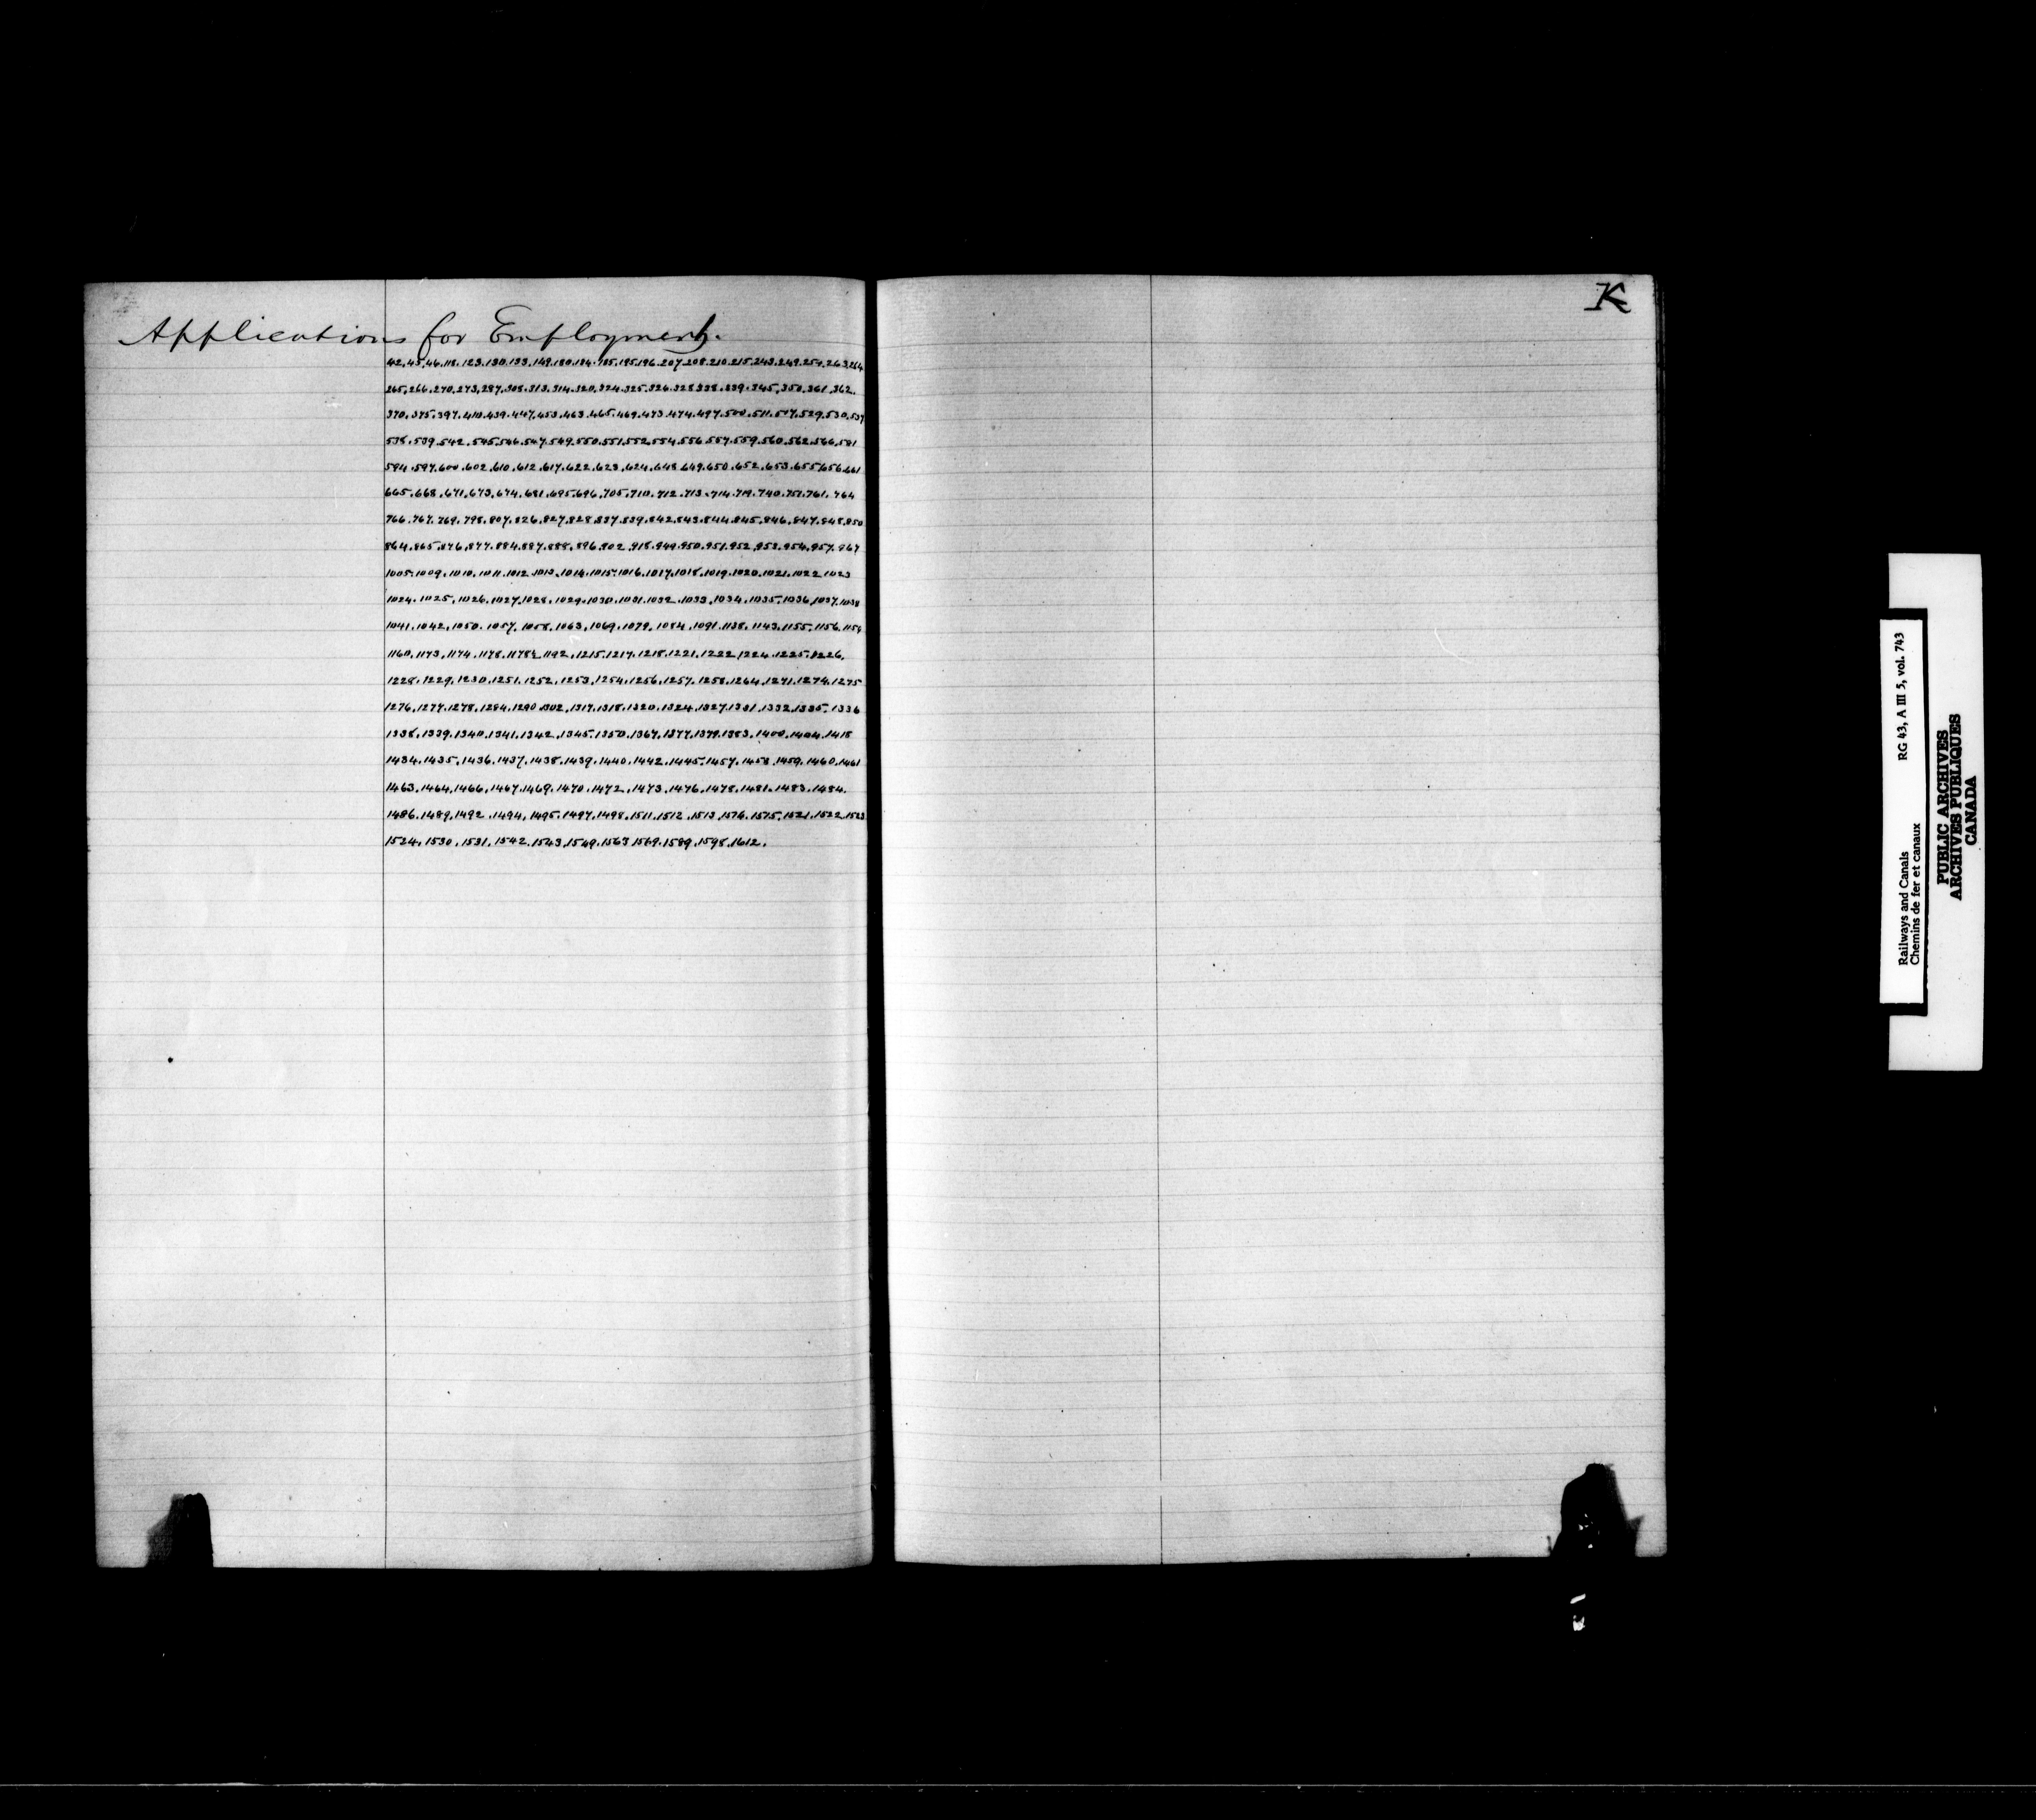 Applications for Employment.
42,45,46,118,123,130,133,149,180,184,185,195,196,207,208,210,215,243,249,254,263,264
265,266,270,273,287,308,313,314,320,324,325,326,328,338,339,345,350,361,362.
370,375,397,410,439,447,453,463,465,469,473,474,497,500,511,517,529,530,537
538,539,542,545,546,547,549,550,551,552,554,556,557,559,560,562,566,581
594,597,600,602,610,612,617,622,623,624,648,649,650,652,653,655,656,661
665,668,671,673,674,681,695,696,705,710,712,713,714,719,740,751,761,764
766,767,769,798,807,826,827,828,837,839,842,843,844,845,846,847,848,850
864,865,876,877,884,887,888,896,902,918,949,950,951,952,953,954,957,967
1005,1009,1010,1011,1012,1013,1014,1015,1016,1017,1018,1019,1020,1021,1022,1023
1024,1025,1026,1027,1028,1029,1030,1031,1032,1033,1034,1035,1036,1037,1038
1041,1042,1050,1057,1058,1063,1069,1079,1084,1091,1138,1143,1155,1156,1159
1160,1173,1174,1178,1178½,1192,1215,1217,1218,1221,1222,1224,1225,1226.
1228,1229,1230,1251,1252,1253,1254,1256,1257,1258,1264,1271,1274,1275
1276,1277,1278,1284,1290,1302,1317,1318,1320,1324,1327,1331,1332,1335,1336
1338,1339,1340,1341,1342,1345,1350,1367,1377,1379,1383,1400,1404,1418
1434,1435,1436,1437,1438,1439,1440,1442,1445,1457,1458,1459,1460,1461
1463,1464,1466,1467,1469,1470,1472,1473,1476,1478,1481,1483,1484.
1486,1489,1492,1494,1495,1497,1498,1511,1512,1513,1514,1515,1521,1522,1523
1524,1530,1531,1542,1543,1549,1563,1569,1589,1598,1612.
K
Railways and Canals RG 43, A III 5, vol. 743
Chemins de fer et canaux
PUBLIC ARCHIVES
ARCHIVES PUBLIQUES
CANADA